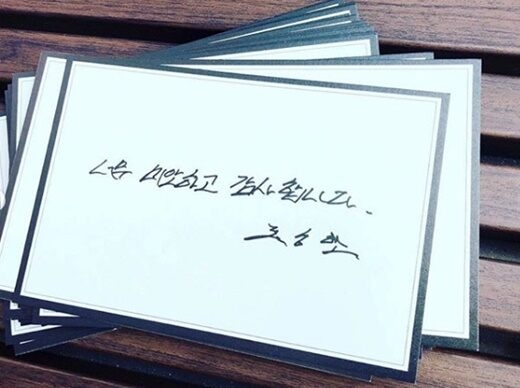 너무 미안하고 감사합니다.
조승현